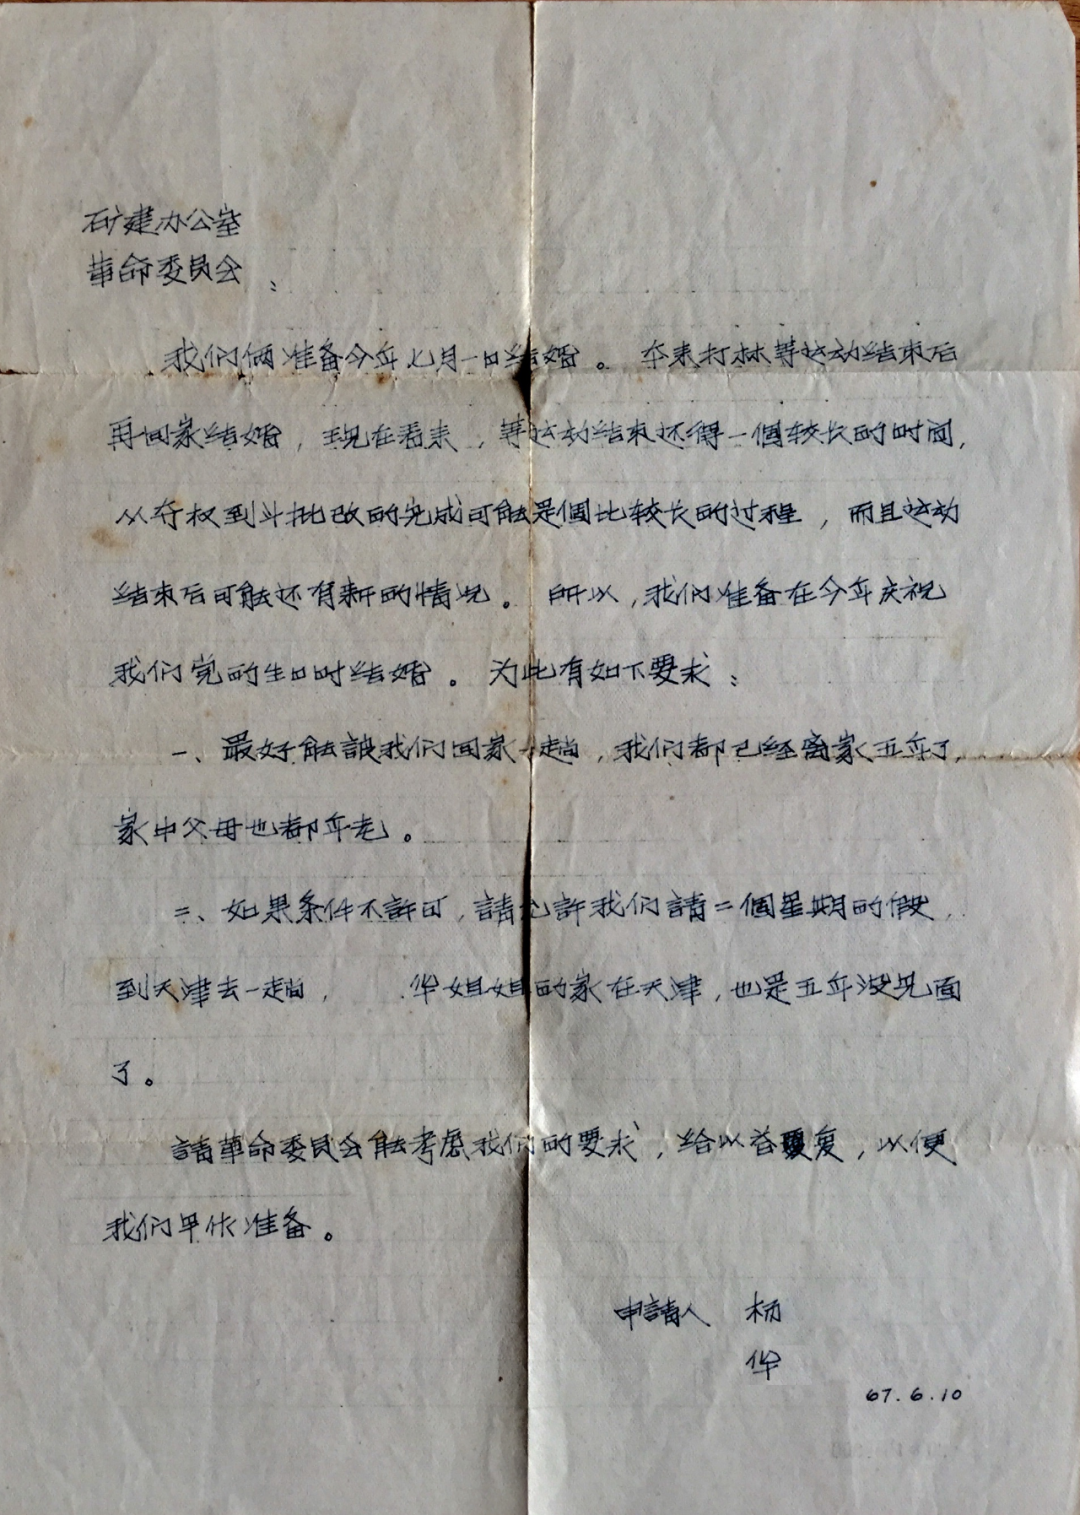 矿建办公室
革命委员会：
我们俩准备今年七月一日结婚。本来打标等运动结束后
再回家结婚，现在看来，等运动结束还得一個较长的时间，
从夺权到斗批改的完成可能是個比较长的过程，而且运动
结束后可能还有新的情况。所以，我们准备在今年庆祝
我们党的生日时结婚。为此有如下要求：
一、最好能讓我们回家一趟，我们都已经离家五年了，
家中父母也都年老。
二、如果条件不許可，請允許我们請二個星期的假，
到天津去一趟，华姐姐的家在天津，也是五年没见面
了。
請革命委员会能考虑我们的要求，给以答复，以便
我们早作准备。
申請人 杨
华
67.6.10